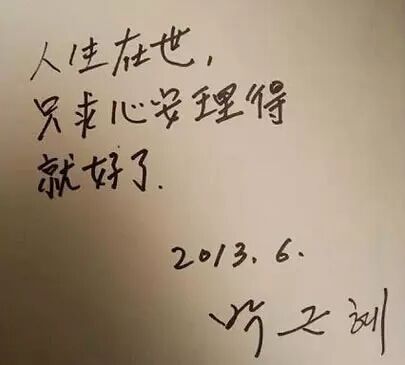 人生在世,
只求心安理得
就好了.
2013. 6.
박근혜